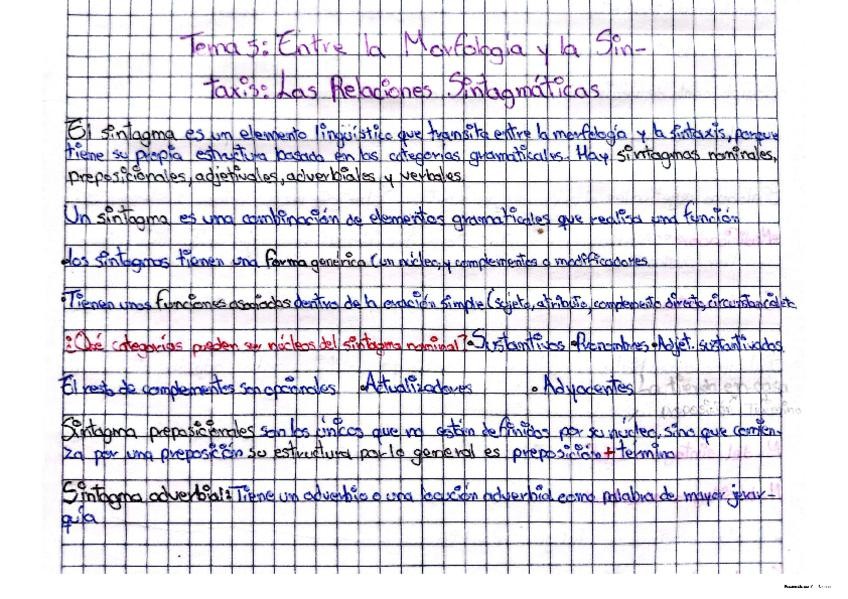 Tema 5: Entre la Morfología y la Sin-
taxis: Las Relaciones Sintagmáticas
El sintagma es un elemento lingüístico que transita entre la morfología y la sintaxis, porque
tiene su propia estructura basada en las categorías gramaticales. Hay sintagmas nominales,
preposicionales, adjetivales, adverbiales y verbales.
Un sintagma es una combinación de elementos gramaticales que realisa una función
Los sintagmas tienen una forma genérica (un núcleo, y complementos o modificadores
•Tienen unas funciones asociadas dentro de la oración simple (sujeto, atributo, complemento directo, circunstancial, etc
¿Qué categorías pueden ser núcleos del sintagma nominal? •Sustantivos •Pronombres •Adjet. sustantivados
El resto de complementos son opcionales •Actualizadores •Adyacentes
Sintagma preposicionales son los únicos que no están definidos por su núcleo, sino que comien-
za por una preposición su estructura por lo general es preposición + término
Sintagma adverbial: Tiene un adverbio o una locución adverbial como palabra de mayor jerar-
quía